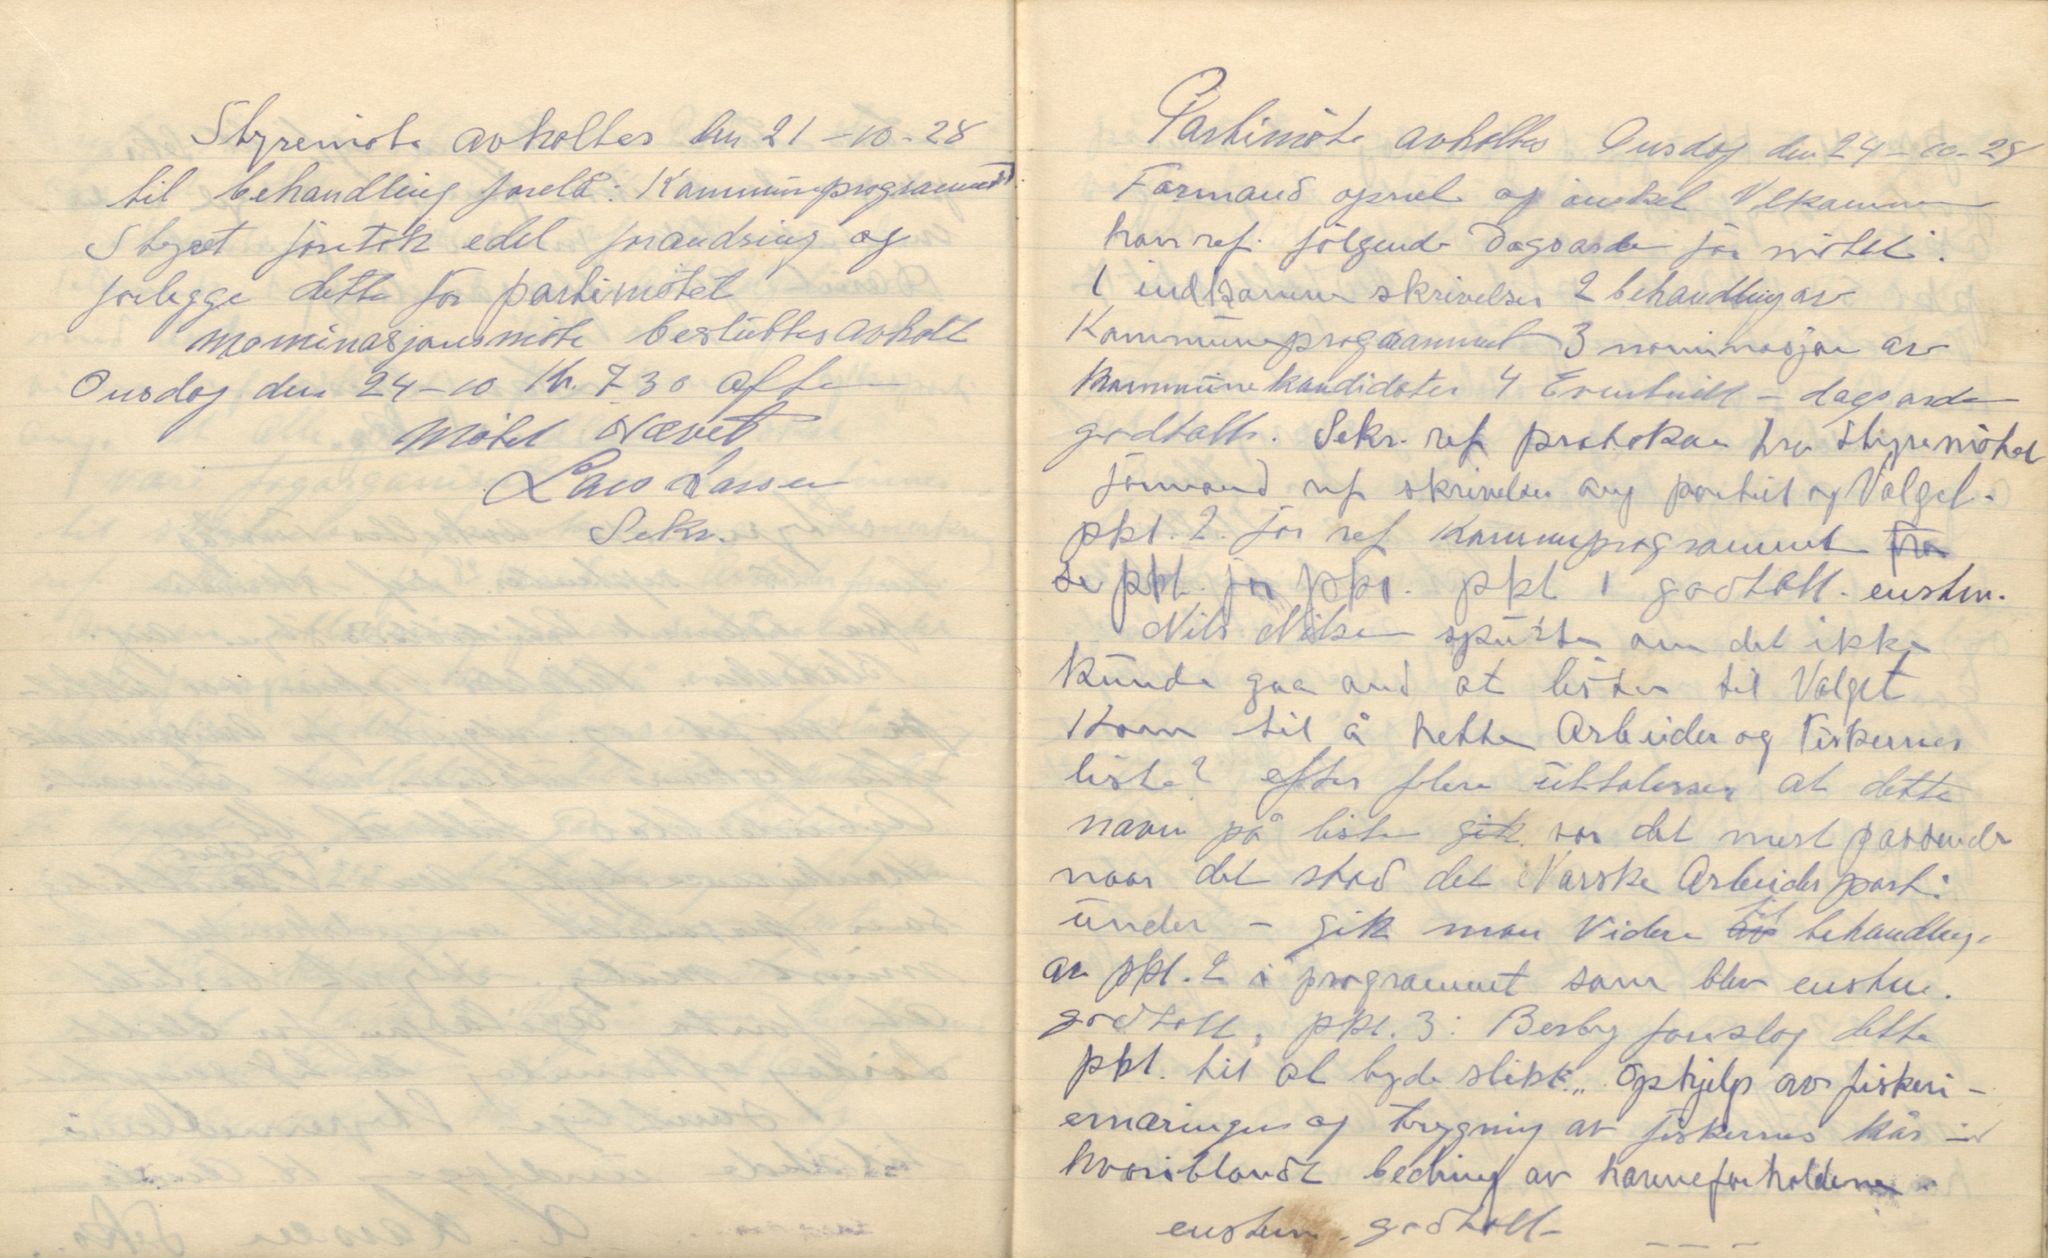 Styremöte avholtes den 21-10-28
til behandling forelå: Kommuneprogrammet
Styret foretok edel forandring og
forlegge dette for partimötet
Nominasjonsmöte besluttes avholt
Onsdag den 24-10 Kl. 7.30 aften
Mötet hævet
Lars Larsen
Sekr.
Partimöte avholtes Onsdag den 24-10-28
Formand opnet og önsket Velkommen
han ref. fölgende Dagsorden for mötet:
1 indkomne skrivelser 2 behandling av
Kommuneprogrammet 3 nominasjon av
Kommunekandidater 4 Eventuelt - dagsorden
godtatt. Sekr. ref protokoen fra Styremötet
formand ref skrivelser ang partiet og Valget.
pkt. 2. for ref Kommuneprogrammet
pkt. for pkt. pkt 1 godtatt. enstem.
Nils Nilsen spurte om det ikke
kunde gaa and at listen til Valget
kom til å hette Arbeider og Fiskernes
liste? efter flere uttalerser at dette
navn på listen var det mest passende
naar det stod det Norske Arbeiderparti
under - gik man Videre til behandling
av pkt. 2 i programmet som blev enstem.
godtatt, pkt. 3: Berby foreslog dette
pkt. til at lyde slikt: „Ophjelp av fiskeri-
ernæringen og trygning av fiskernes kår -
hvoriblandt bedring av havneforholdene.
enstem. godtatt - - - -